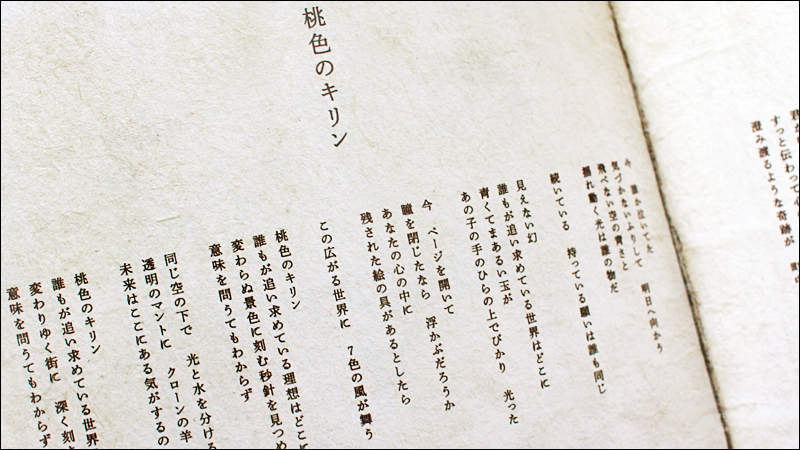 すっと伝わって心
澄み渡るような奇跡が
桃色のキリン
今 誰か泣いてた 明日へ向かう
気づかないふりして
飛べない空の青さと
揺れ動く光は誰の物だ
続いている 持っている願いは誰も同じ
見えない幻
誰もが追い求めている世界はどこに
青くてまあるい玉が
あの子の手のひらの上でぴかり 光った
今 ページを開いて
瞳を閉じたなら 浮かぶだろうか
あなたの心の中に
残された絵の具があるとしたら
この広がる世界に 7色の風が舞う
桃色のキリン
誰もが追い求めている理想はどこに
変わらぬ景色に刻む秒針を見つめ
意味を問うてもわからず
同じ空の下で 光と水を分ける
透明のマントに クローンの羊
未来はここにある気がするの
桃色のキリン
誰もが追い求めている世界
変わりゆく街に 深く刻
意味を問うてもわからず